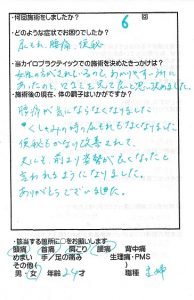 ・何回施術をしましたか？ 6 回
・どのような症状でお困りでしたか？
尿もれ、腰痛、便秘
・当カイロプラクティックでの施術を決めたきっかけは？
女性の方がされているのと、わかりやすい所に
あったのと、HPなどを見て良いと思い決めました。
・施術後の現在、体の調子はいかがですか？
腰痛が気にならなくなりました
くしゃみの時の尿もれもなくなりました
便秘もかなり改善されて、
夫にも、前より姿勢が良くなったと
言われるようになりました。
ありがとうございました。
・該当する箇所に○をお願いします
頭痛 首痛 肩こり 腰痛 背中痛
めまい 手／足の痛み 生理痛・PMS
その他（ ）
男・女 年齢 24才 職種 主婦